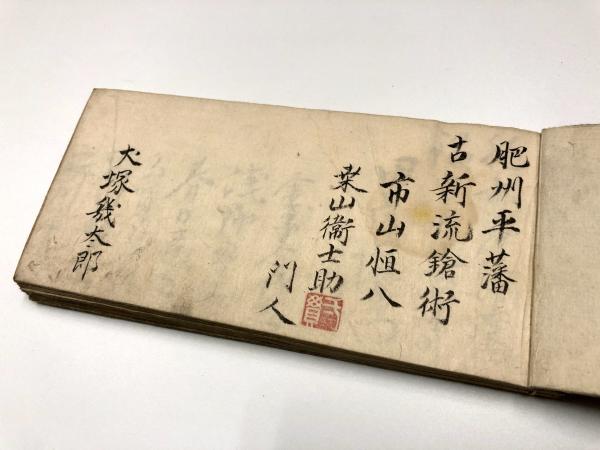 肥州平藩
古新流鎗術
市山恒八
山衞士助
門人
犬塚幾太郎